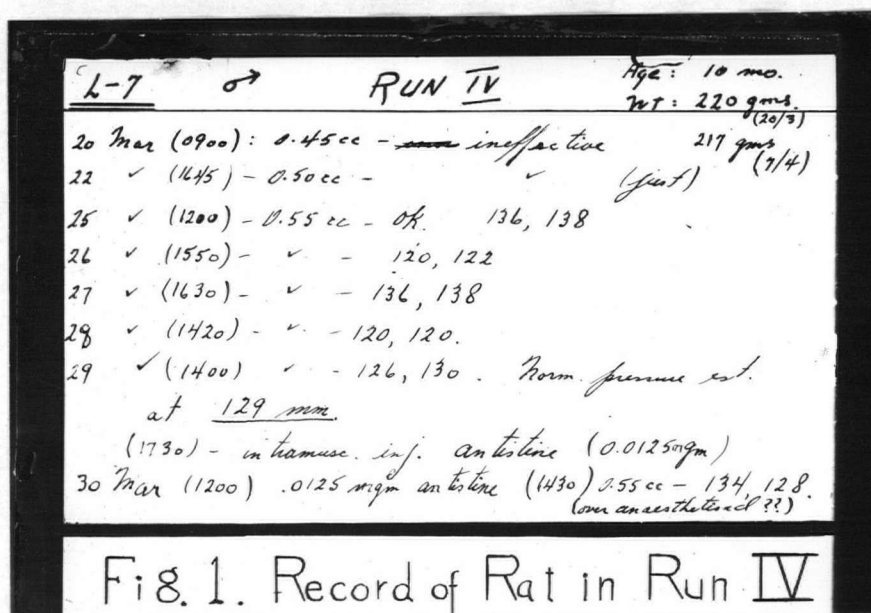 L-7 ♂ RUN IV Age: 10 mo.
Wt: 220 gms.
(20/3)
20 Mar (0900): 0.45cc - ineffective 217 gms
(7/4)
22 ✓ (1645) - 0.50cc - ✓ (just)
25 ✓ (1200) - 0.55 cc - ok. 136, 138
26 ✓ (1550) - ✓ - 120, 122
27 ✓ (1630) - ✓ - 136, 138
28 ✓ (1420) - ✓ - 120, 120.
29 ✓ (1400) ✓ - 126, 130. Norm. pressure est.
at 129 mm.
(1730) - intramusc. inj. antistine (0.0125mgm)
30 Mar (1200) .0125 mgm antistine (1430) 0.55 cc - 134, 128.
(over anaesthetised ??)
Fig. 1. Record of Rat in Run IV